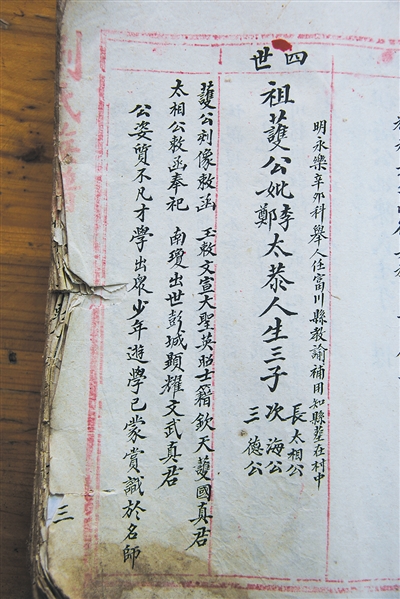 四世
明永樂辛卯科舉人任富川縣教諭補用知縣墓在村中
祖䕶公妣李鄭太恭人生三子
長太相公
次海公
三德公
䕶公刻像敕函 玉敕文宣大聖英昭士籍欽天䕶國真君
太相公敕函奉祀 南瓊出世彭城顯耀文武真君
公姿質不凡才學出衆少年遊學已蒙賞識於名師
三